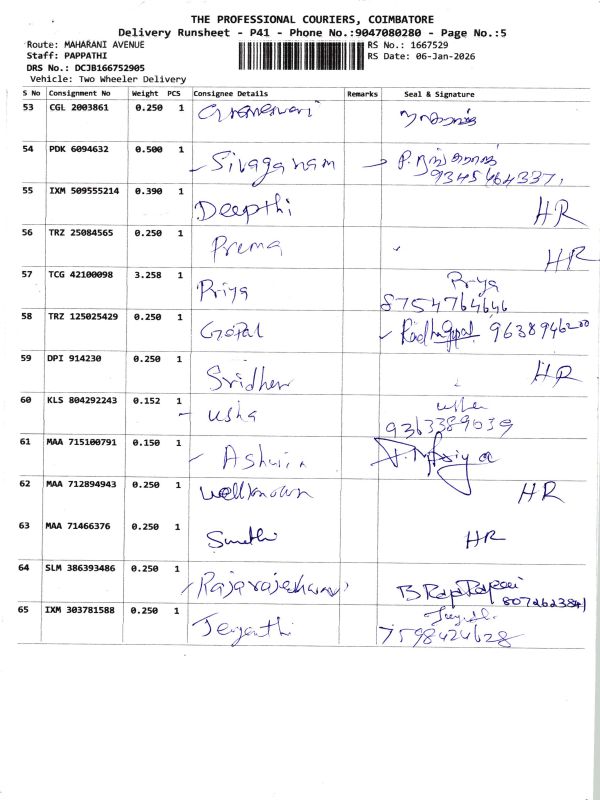 THE PROFESSIONAL COURIERS, COIMBATORE
Delivery Runsheet - P41 - Phone No.:9047080280 - Page No.:5
Route: MAHARANI AVENUE RS No.: 1667529
Staff: PAPPATHI RS Date: 06-Jan-2026
DRS No.: DCJB166752905
Vehicle: Two Wheeler Delivery
S No Consignment No Weight PCS Consignee Details Remarks Seal & Signature
53 CGL 2003861 0.250 1
54 PDK 6094632 0.500 1 Sivaganam P.
9345464337
55 IXM 509555214 0.390 1 Deepthi HR
56 TRZ 25084565 0.250 1 Prema HR
57 TCG 42100098 3.258 1 Priya Priya
8754764646
58 TRZ 125025429 0.250 1 Gopal RadhaGopal 9638946200
59 DPI 914230 0.250 1 Sridher HR
60 KLS 804292243 0.152 1 usha usha
9363389039
61 MAA 715100791 0.150 1 Ashwin
62 MAA 712894943 0.250 1 wellknown HR
63 MAA 71466376 0.250 1 Sumathi HR
64 SLM 386393486 0.250 1 Rajarajeshwari B
8072623841
65 IXM 303781588 0.250 1 Jeyanthi
7598424628